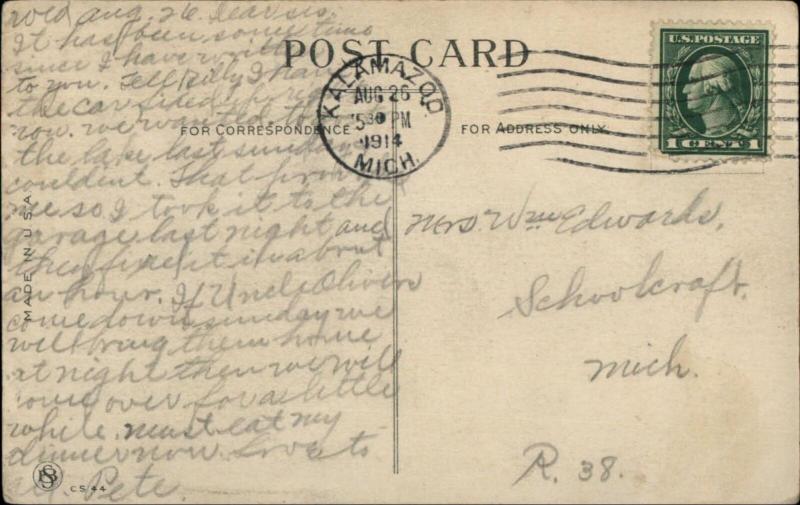 Wed Aug. 26. Dear sis.
It has been some time
since I have
to you. Tell Billy I have
the car
now. we wanted to
the lake last sunday
couldent. That
me so I took it to the
garage last night and
they fixed it in about
an hour. If Uncle Olivers
come down sunday we
will bring them home
at night then we will
come over for a little
while. must eat my
dinner now Love to
all. Pete.
POST CARD
FOR CORRESPONDENCE
FOR ADDRESS ONLY.
KALAMAZOO
AUG 26
530 PM
1914
MICH.
U.S. POSTAGE
1 CENT 1
Mrs Wm Edwards,
Schoolcraft.
Mich.
R. 38.
MADE IN U.S.A.
CS/44